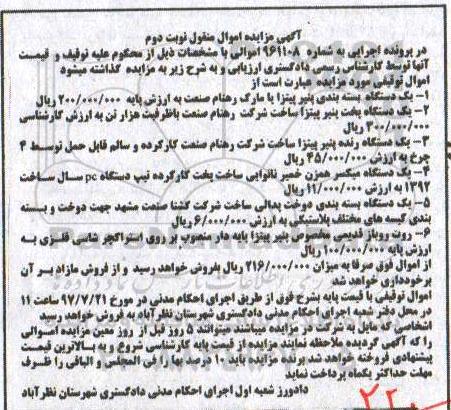 آگهی مزایده اموال منقول نوبت دوم
در پرونده اجرایی به شماره ۹۶۱۱۰۸ اموالی با مشخصات ذیل از محکوم علیه توقیف و قیمت
آنها توسط کارشناس رسمی دادگستری ارزیابی و به شرح زیر به مزایده گذاشته میشود
اموال توقیفی مورد مزایده عبارت است از
۱- یک دستگاه بسته بندی پنیر پیتزا با مارک رهنام صنعت به ارزش پایه ۲۰۰/۰۰۰/۰۰۰ ریال
۲- یک دستگاه پخت پنیر پیتزا ساخت شرکت رهنام صنعت باظرفیت هزار تن به ارزش کارشناسی
۳۰۰/۰۰۰/۰۰۰ ریال
۳- یک دستگاه رنده پنیر پیتزا ساخت شرکت رهنام صنعت کارکرده و سالم قابل حمل توسط ۴
چرخ به ارزش ۴۵/۰۰۰/۰۰۰ ریال
۴- یک دستگاه میکسر همزن خمیر نانوایی ساخت پخت کارکرده تیپ دستگاه pc سال ساخت
۱۳۹۲ به ارزش ۱۱/۰۰۰/۰۰۰ ریال
۵- یک دستگاه بسته بندی دوخت پدالی ساخت شرکت گشتا صنعت مشهد جهت دوخت و بسته
بندی کیسه های مختلف پلاستیکی به ارزش ۶/۰۰۰/۰۰۰ ریال
۶- روت روباز قدیمی مخصوص پنیر پیتزا پایه دار منصوب بر روی استراکچر شاسی فلزی به
ارزش پایه ۱۰۰/۰۰۰/۰۰۰ ریال
از اموال فوق صرفا به میزان ۲۱۶/۰۰۰/۰۰۰ ریال بفروش خواهد رسید و از فروش مازاد بر آن
خودداری خواهد شد
اموال توقیفی با قیمت پایه بشرح فوق از طریق اجرای احکام مدنی در مورخ ۹۷/۷/۲۱ ساعت ۱۱
در محل دفتر شعبه اجرای احکام مدنی دادگستری شهرستان نظرآباد به فروش خواهد رسید
اشخاصی که مایل به شرکت در مزایده میباشند میتوانند ۵ روز قبل از روز معین مزایده اموالی
را که آگهی گردیده ملاحظه نمایند مزایده از قیمت پایه کارشناسی شروع و به بالاترین قیمت
پیشنهادی فروخته خواهد شد برنده مزایده باید ۱۰ درصد بها را فی المجلس و الباقی را ظرف
مهلت حداکثر یکماه پرداخت نماید
دادورز شعبه اول اجرای احکام مدنی دادگستری شهرستان نظرآباد